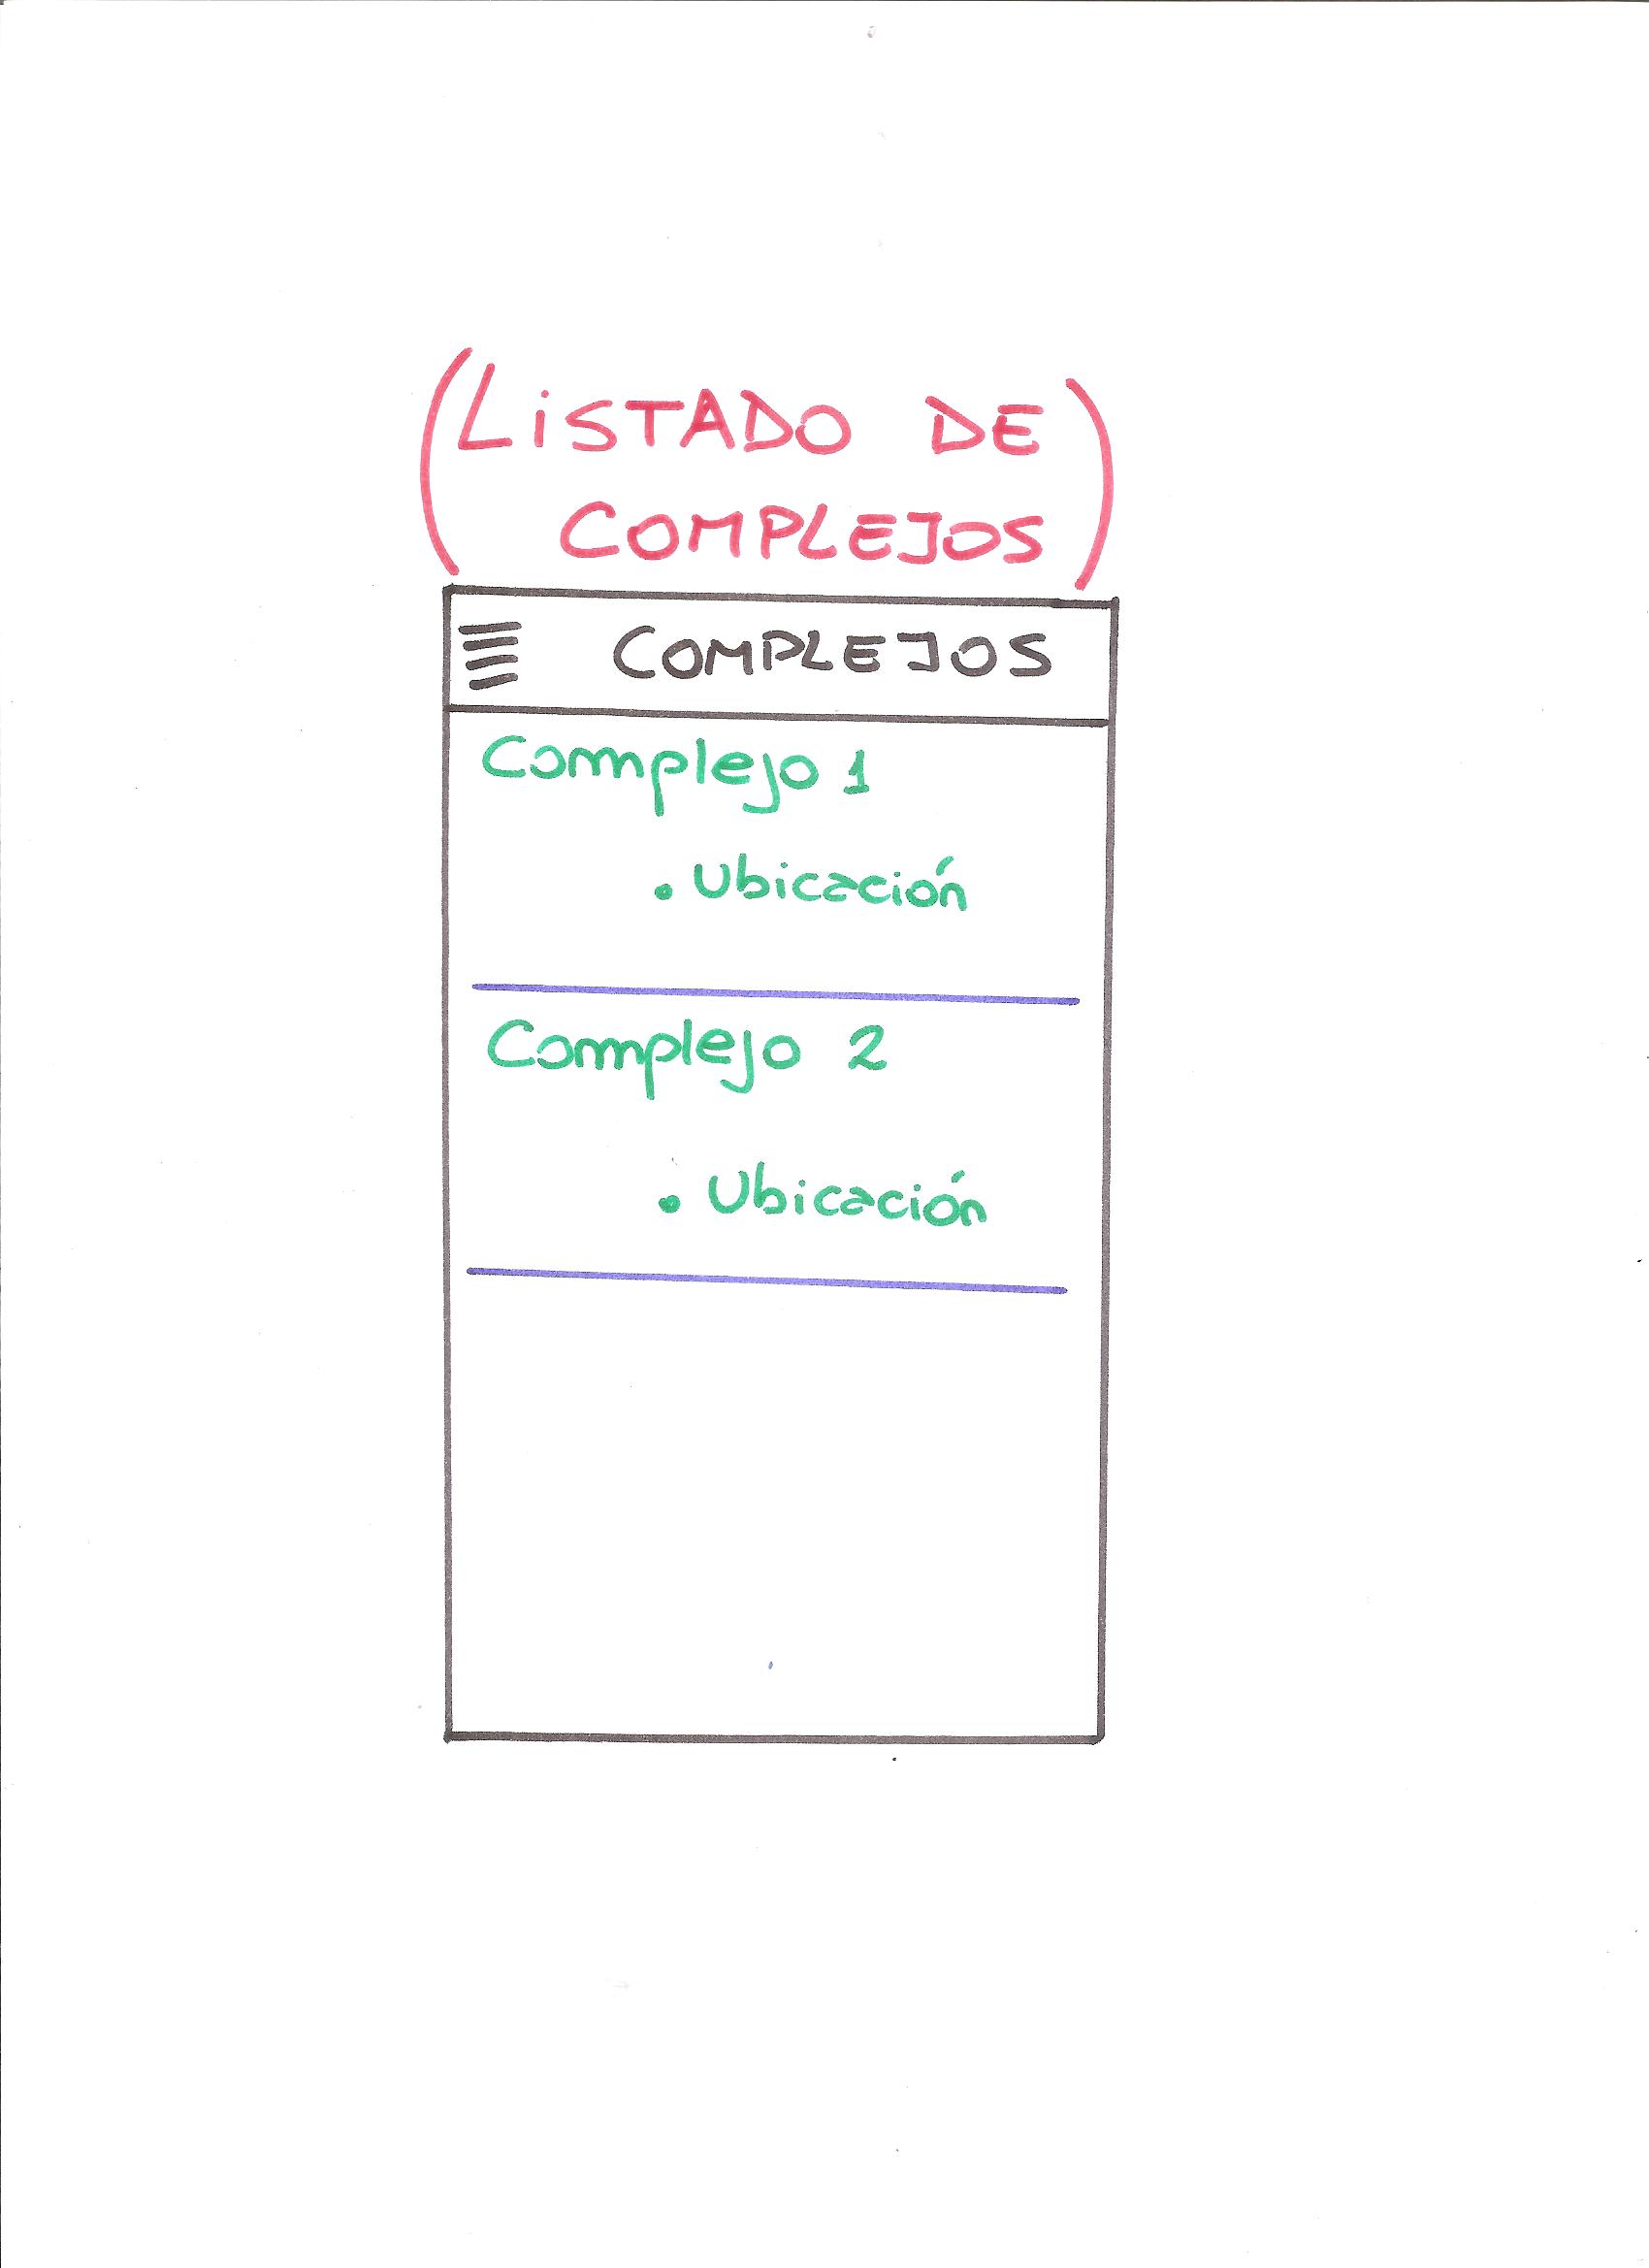 (LiSTADO DE
COMPLEJOS)
COMPLEJOS
Complejo 1
• Ubicación
Complejo 2
• Ubicación